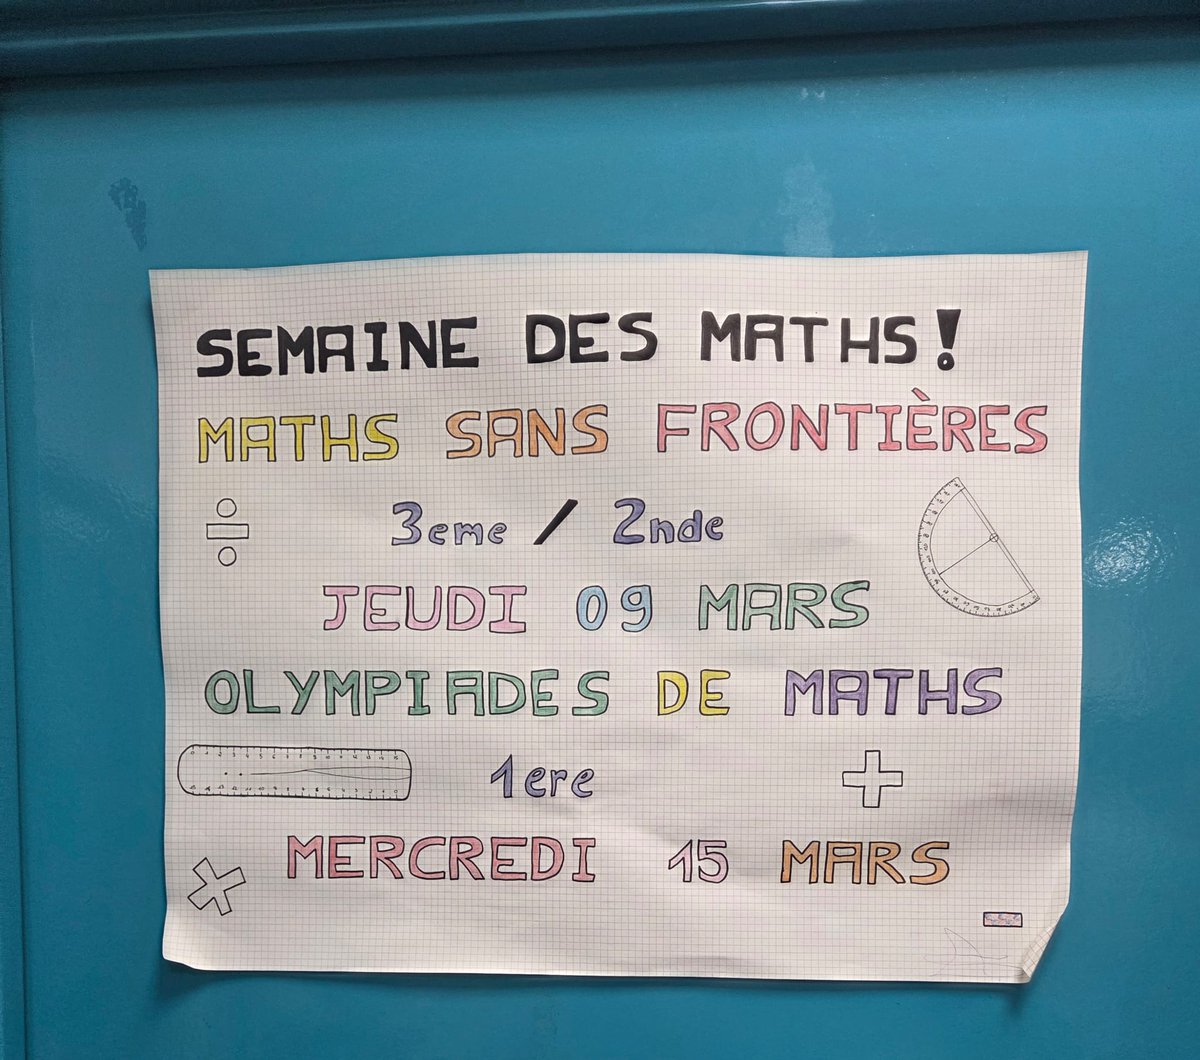 SEMAINE DES MATHS!
MATHS SANS FRONTIÈRES
3eme / 2nde
JEUDI 09 MARS
OLYMPIADES DE MATHS
1ere
MERCREDI 15 MARS